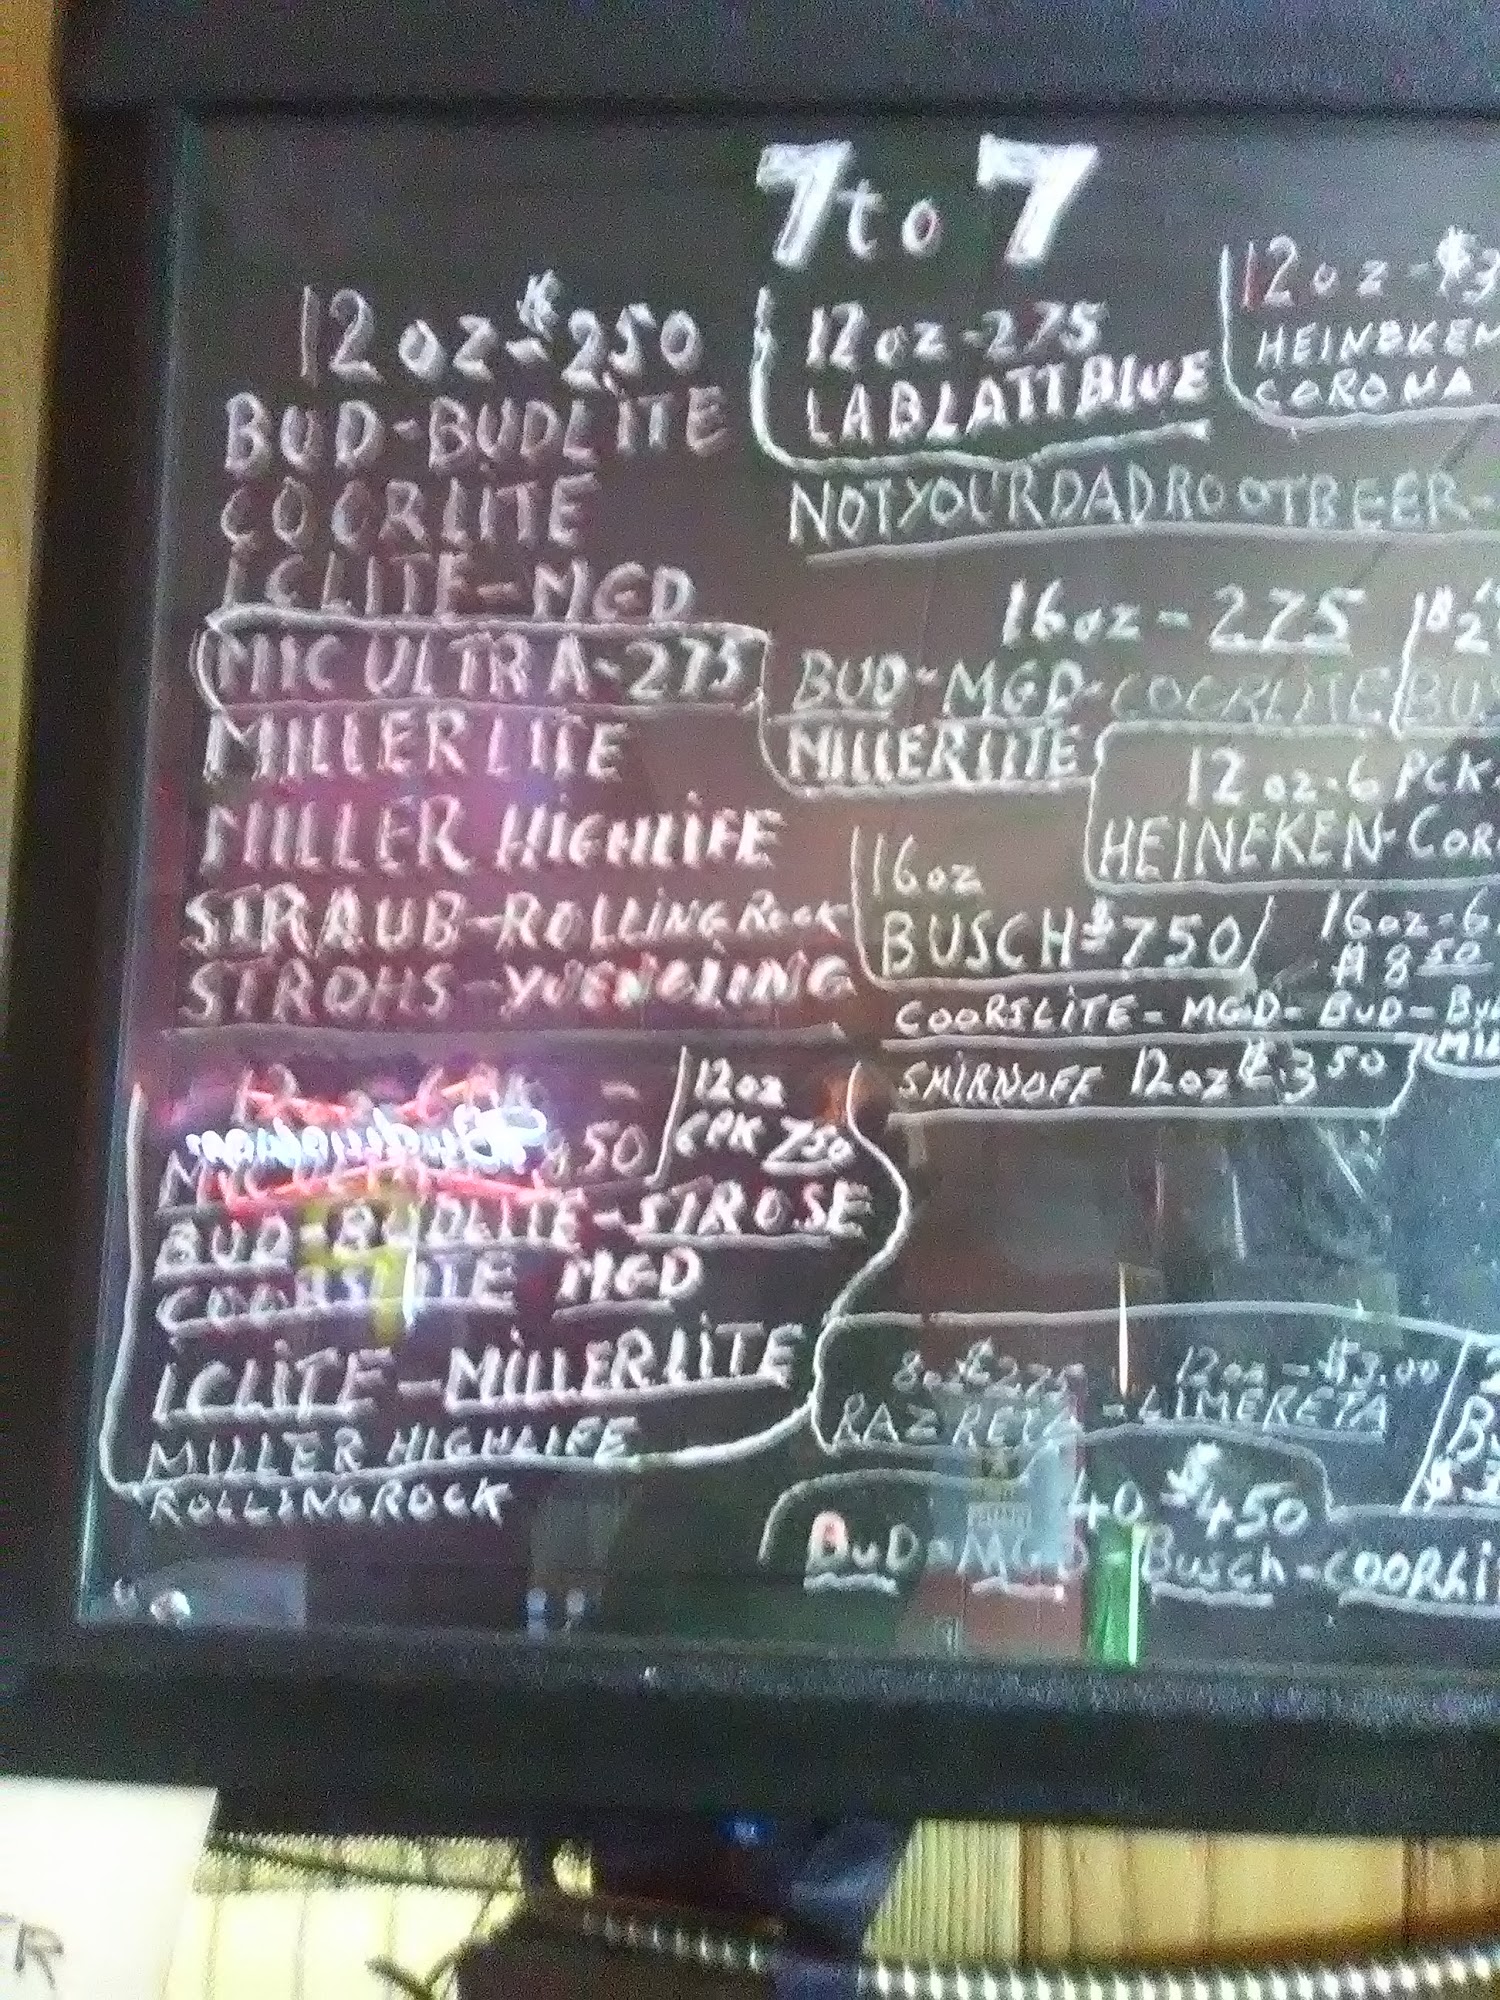 7 to 7
12 oz - $250
BUD - BUDLITE
COORLITE
ICLITE - MGD
MIC ULTRA - 275
MILLERLITE
MILLER HIGHLIFE
STRAUB - ROLLING ROCK
STROHS - YUENGLING
12 oz - 275
LABLATT BLUE
12 oz - $3
HEINEKEN
CORONA
NOTYOURDADROOTBEER -
16 oz - 275
BUD - MGD - COORLITE
MILLERLITE
12 oz - 6 PCK
HEINEKEN - COR
16 oz
BUSCH $750
16 oz - 6
A 850
COORSLITE - MGD - BUD - BU
MIL
SMIRNOFF 12 oz $350
50
12 oz
750
BUD - BUDLITE - STROSE
COORSLITE MGD
ICLITE - MILLERLITE
MILLER HIGHLIFE
ROLLINGROCK
8 oz $275 12 oz - $3.00
RAZ RETA - LIMERETA
40 $450
BUD - MGD - Busch - COORLI
R